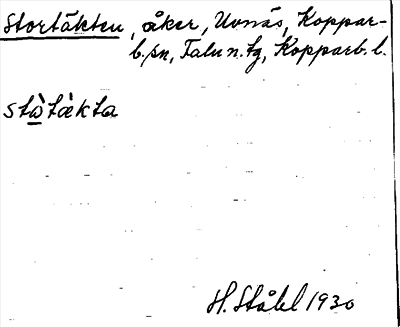 Stortäkten, åker, Uvnäs, Koppar-
b. sn, Falu n. tg, Kopparb. l.
stà̱tæ̀kta
H. Ståhl 1930